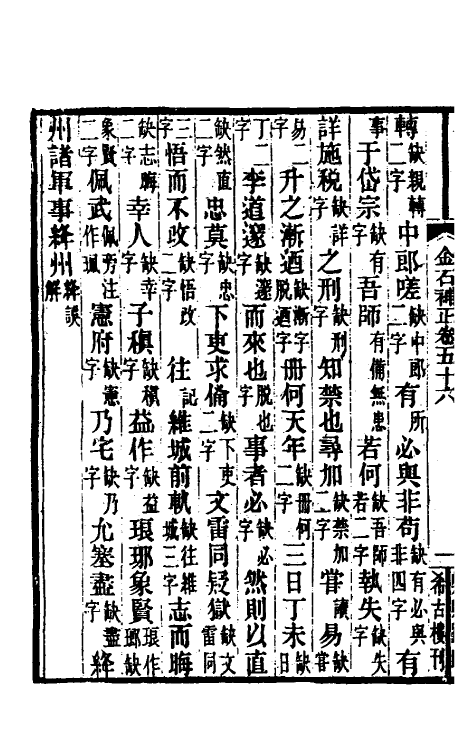 金石補正卷五十六　一　希古樓刊
轉缺親轉二字中郎嗟缺中郎二字有所必與非苟缺有必與非四字有
事于岱宗缺有字吾師有備無患若何缺吾師若二字執失缺失字
詳施稅缺詳字之刑缺刑字知禁也尋加缺禁加二字嘗讀易缺嘗
易二字升之漸酒缺漸字脫酒字冊何天年缺冊何二字三日丁未缺日
丁二字李道邃缺邃字而來也脫也字事者必缺必字然則以直
缺然直二字忠莫缺忠字下吏求備缺下吏二字文雷同疑獄缺文雷同
三字悟而不改缺悟改二字往記維城前軌缺往維城三字志而晦
缺志晦二字幸人缺幸字子稹缺稹字益作缺益字琅瑯象賢琅作瑯缺
象賢二字佩武佩旁注作珮憲府缺憲字乃宅缺乃字允塞盡缺盡字絳
州諸軍事絳州絳誤解